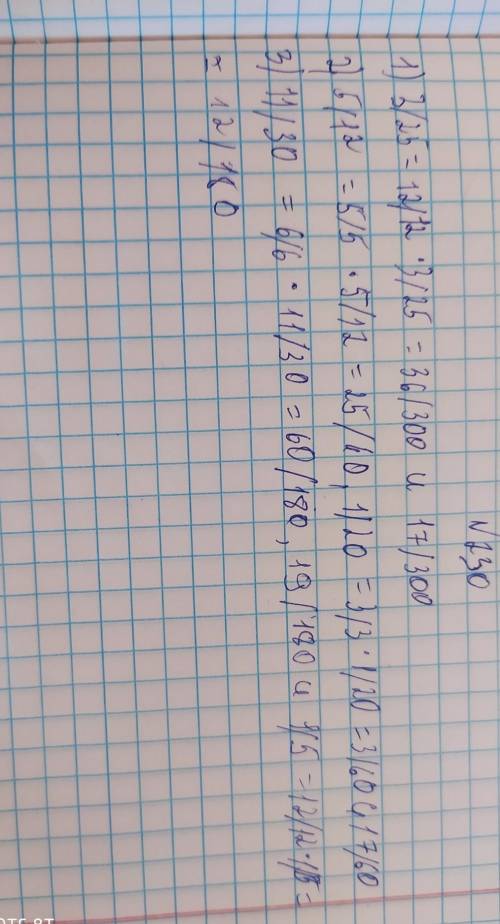 N230
1) 3/25 = 12/12 · 3/25 = 36/300 и 17/300
2) 5/12 = 5/5 · 5/12 = 25/60, 1/20 = 3/3 · 1/20 = 3/60 и 17/60
3) 11/30 = 6/6 · 11/30 = 60/180, 19/180 и 1/5 = 12/12 · 1/15 =
= 12/180